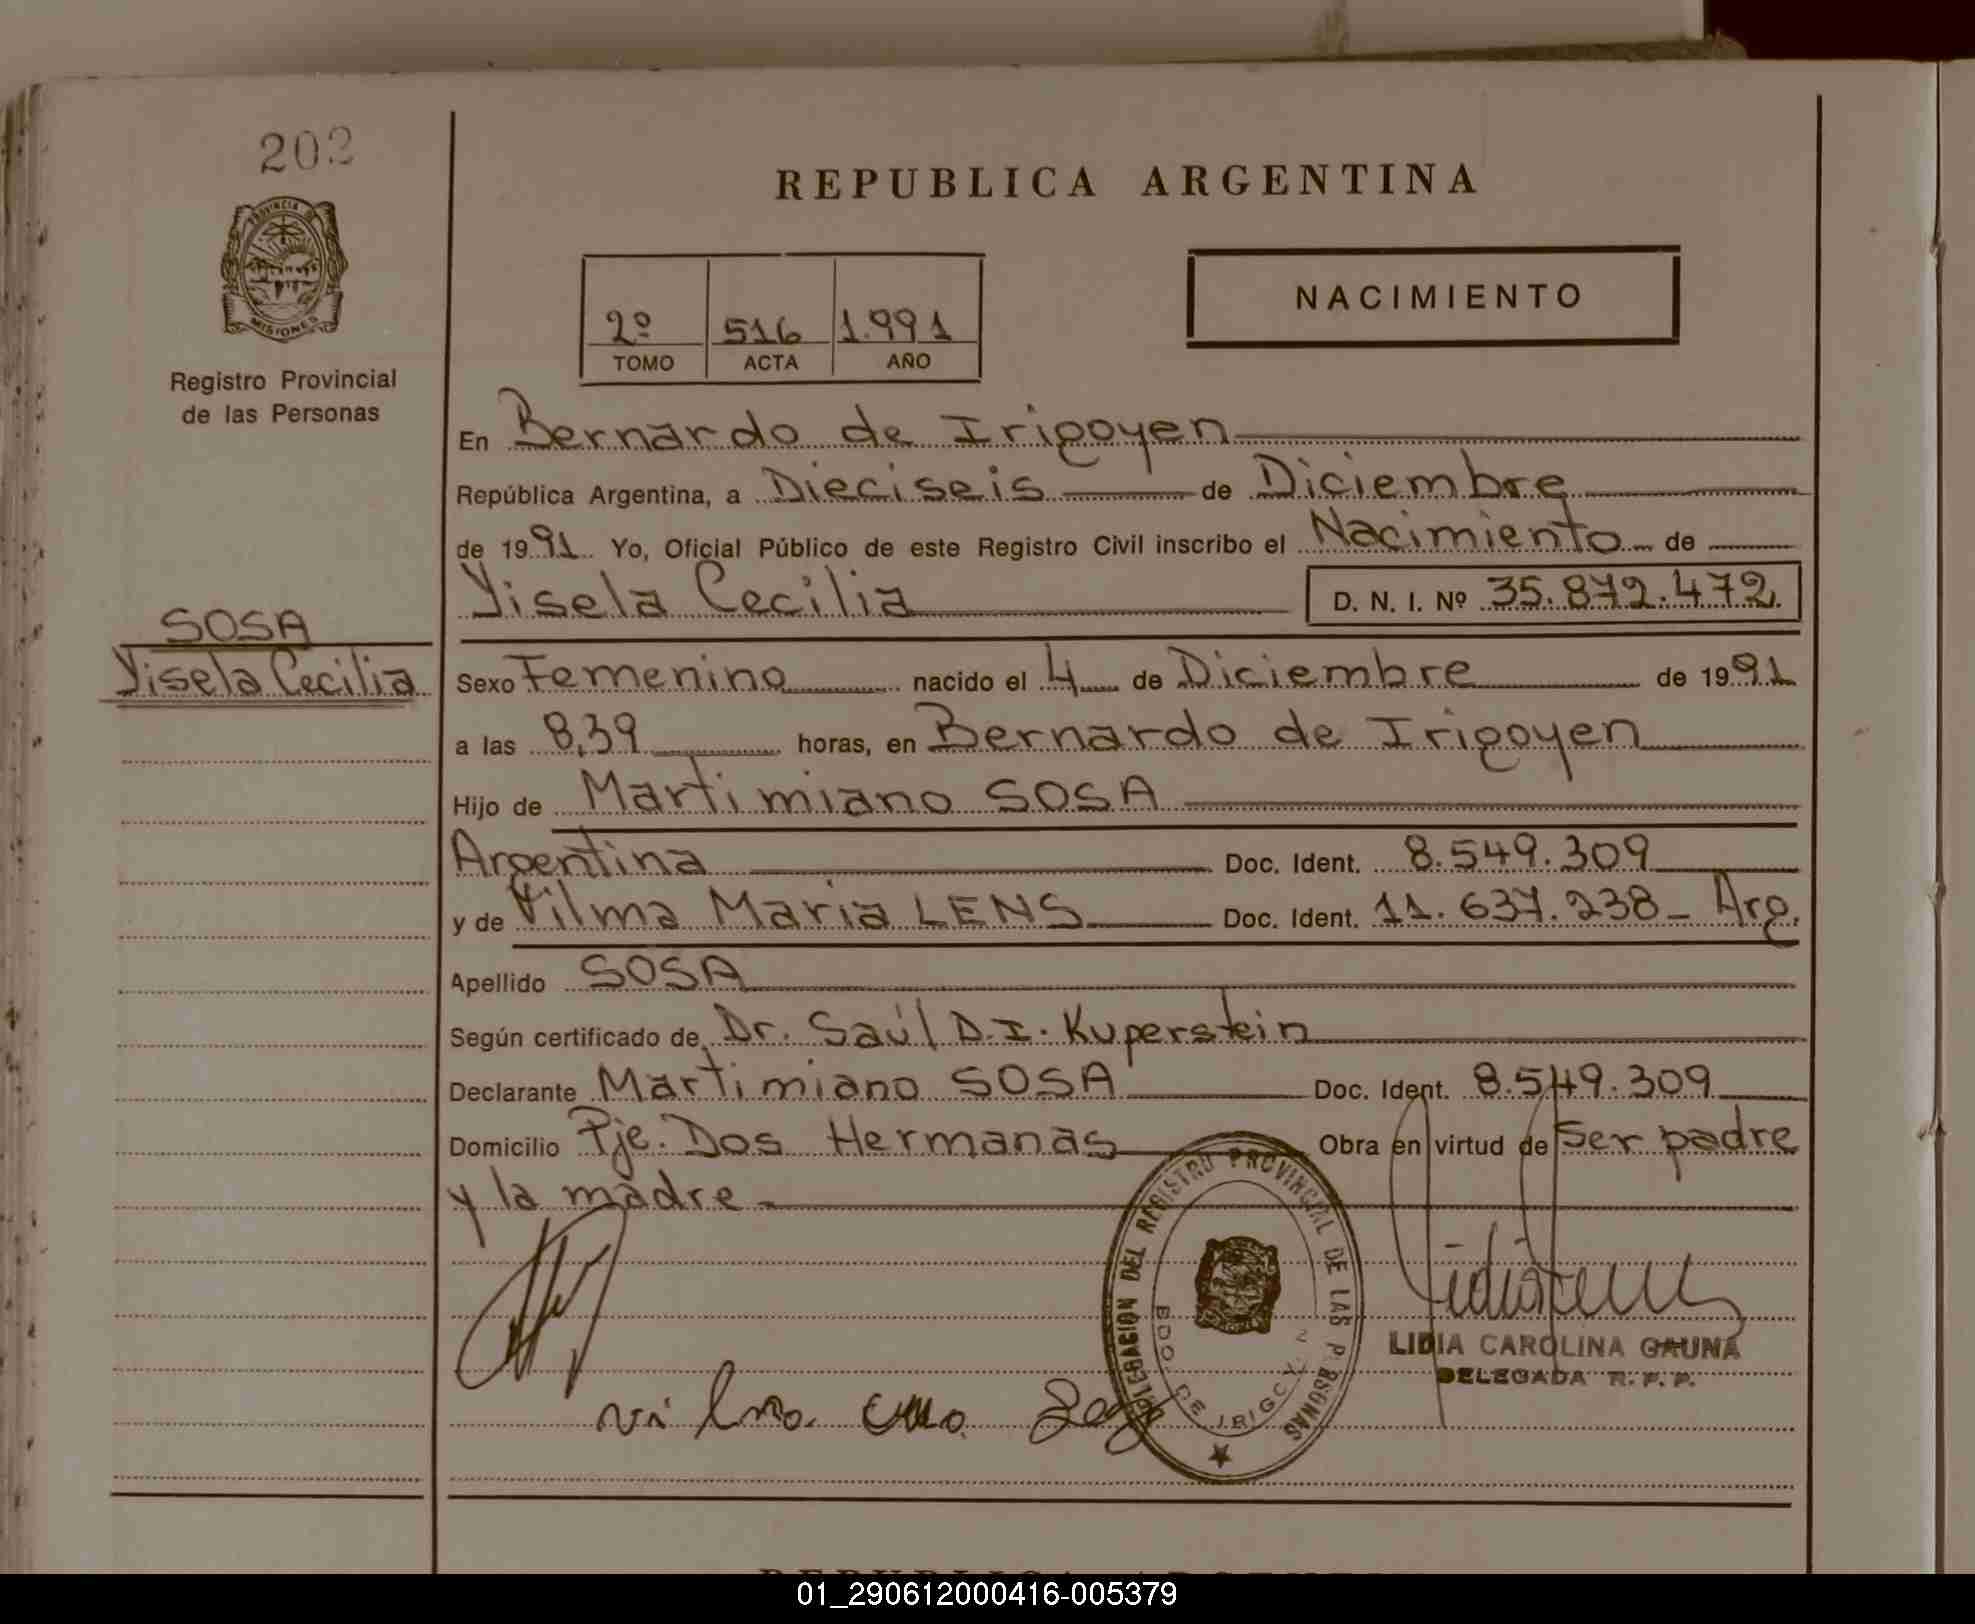 202
PROVINCIA DE
MISIONES
Registro Provincial
de las Personas
SOSA
Yisela Cecilia
REPUBLICA ARGENTINA
2º 516 1.991
TOMO ACTA AÑO
NACIMIENTO
En Bernardo de Irigoyen
República Argentina, a Dieciseis de Diciembre
de 1991 Yo, Oficial Público de este Registro Civil inscribo el Nacimiento de
Yisela Cecilia D. N. I. Nº 35.872.472
Sexo Femenino nacido el 4 de Diciembre de 1991
a las 8,39 horas, en Bernardo de Irigoyen
Hijo de Martimiano SOSA
Argentina Doc. Ident. 8.549.309
y de Vilma Maria LENS Doc. Ident. 11.637.238_ Arg.
Apellido SOSA
Según certificado de Dr. Saúl D.I. Kuperstein
Declarante Martimiano SOSA Doc. Ident. 8.549.309
Domicilio Pje. Dos Hermanas Obra en virtud de ser padre
y la madre
DELEGACION DEL REGISTRO PROVINCIAL DE LAS PERSONAS
BDO. DE IRIGOYEN
LIDIA CAROLINA GAUNA
DELEGADA R. P. P.
REPUBLICA ARGENTINA
01_290612000416-005379